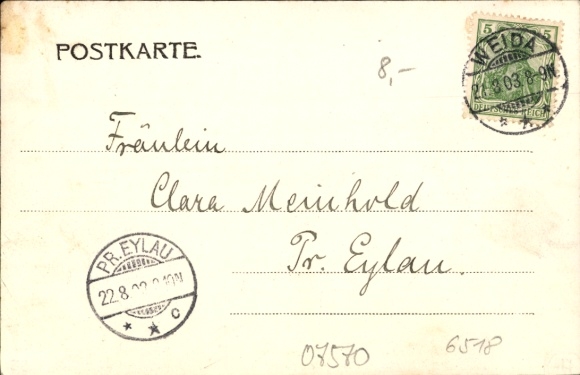 POSTKARTE.
8,-
5 5
DEUTSCHES REICH
WEIDA
21.8.03.8-9N.
Fräulein
Clara Meinhold
Pr. Eylau.
PR. EYLAU
22.8.03
c
07570
6518